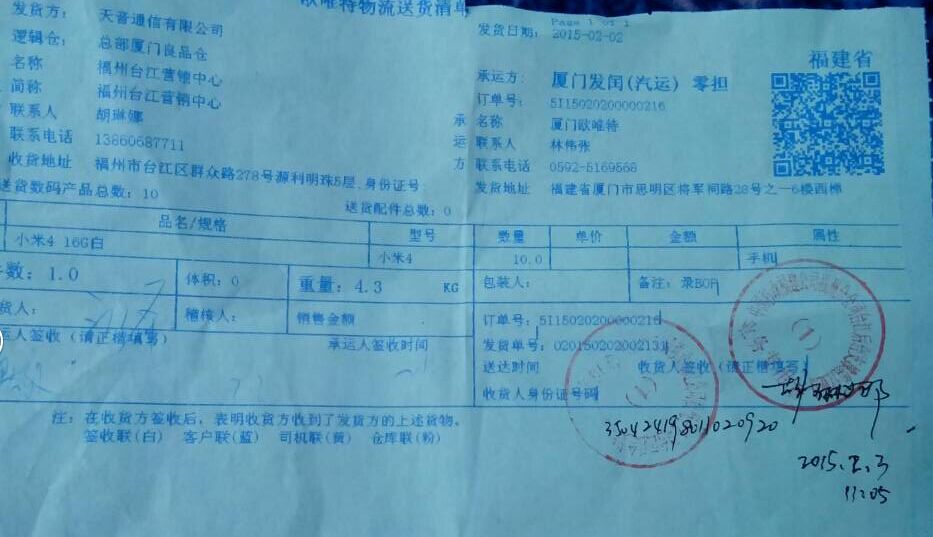 欧唯特物流送货清单
Page 1 of 1
发货方: 天音通信有限公司
发货日期: 2015-02-02
逻辑仓: 总部厦门良品仓
福建省
名称 福州台江营销中心
承运方: 厦门发闰(汽运) 零担
简称 福州台江营销中心
订单号: 5115020200000216
联系人 胡琳娜
承 名称 厦门欧唯特
联系电话 13860687711
运 联系人 林伟张
收货地址 福州市台江区群众路278号源利明珠5层,身份证号:
方 联系电话 0592-5169568
送货数码产品总数: 10
发货地址 福建省厦门市思明区将军祠路28号之一6楼西梯
送货配件总数: 0
品名/规格 型号 数量 单价 金额 属性
小米4 16G白 小米4 10.0 手机
件数: 1.0 体积: 0 重量: 4.3 KG 包装人: 备注: 录BOP
货人: 稽核人: 销售金额 订单号: 5115020200000216
运人签收(请正楷填写) 承运人签收时间 发货单号: 020150202002131
送达时间 收货人签收(请正楷填写)
收货人身份证号码
350424198011020920
注: 在收货方签收后, 表明收货方收到了发货方的上述货物。
签收联(白) 客户联(蓝) 司机联(黄) 仓库联(粉)
2015.2.3
11:05